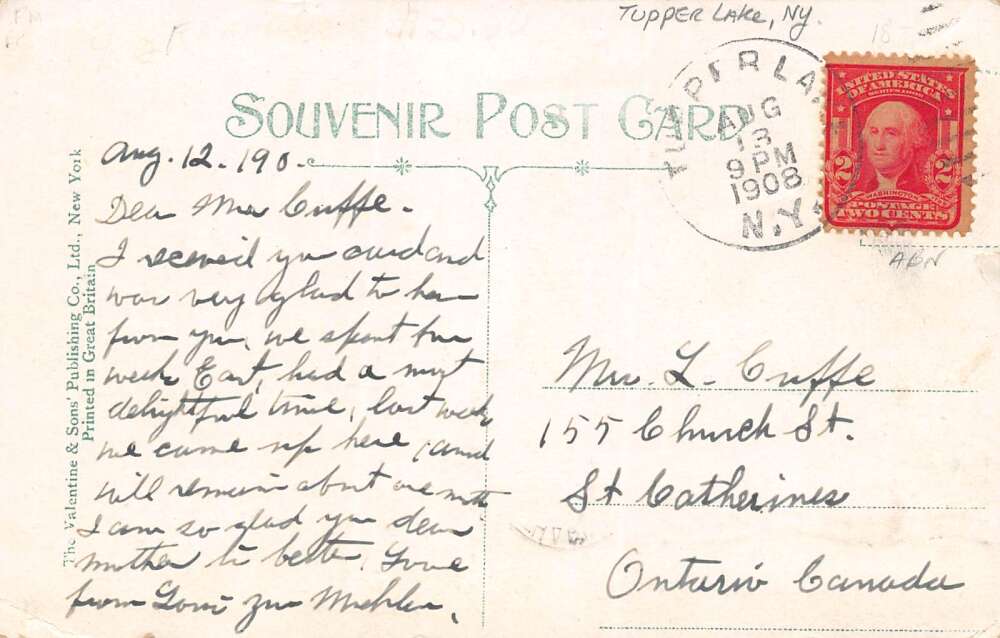 TUPPER LAKE, NY.
TUPPER LA
AUG
13
9 PM
1908
N.Y.
UNITED STATES
OF AMERICA
SERIES 1902
2 2
WASHINGTON
POSTAGE
TWO CENTS
SOUVENIR POST CARD
ABN
The Valentine & Sons' Publishing Co., Ltd., New York
Printed in Great Britain
Aug. 12. 190.
Dear Mrs Cuffe.
I received your card and
was very glad to hear
from you, we spent four
weeks East, had a most
delightful time, last week
we came up here, and
will remain about one month
I am so glad your dear
mother is better. Love
from
Mrs. L. Cuffe
155 Church St.
St Catherines
Ontario Canada